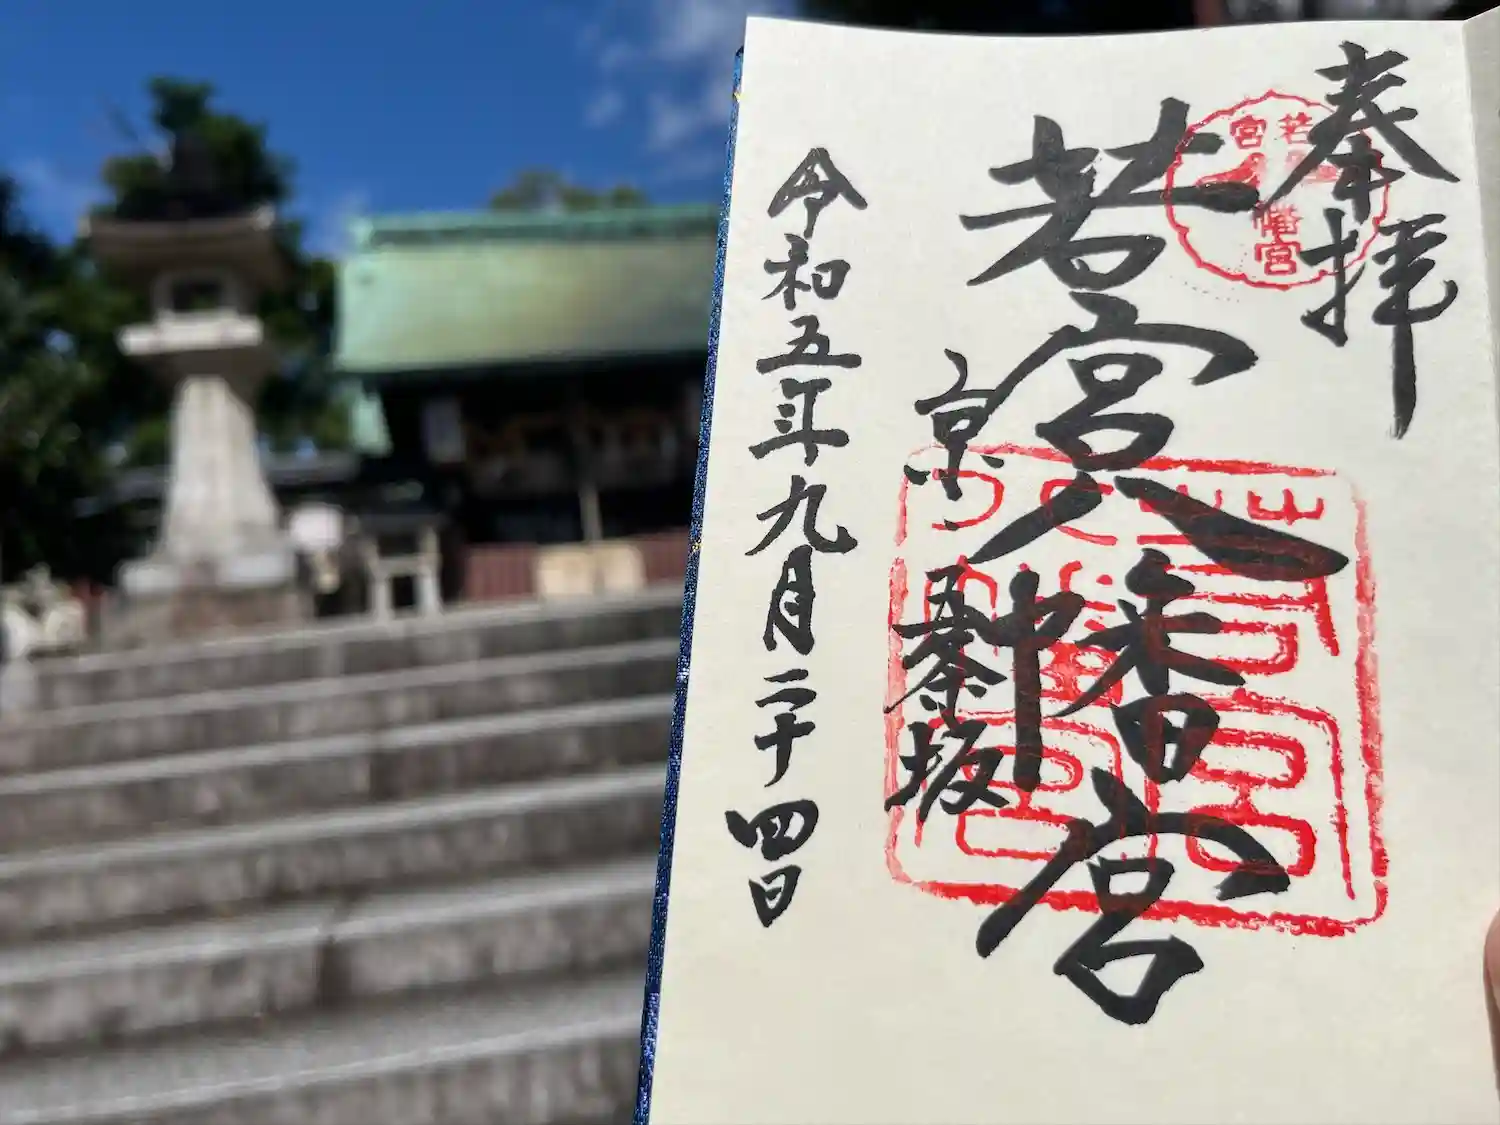 奉拝
若宮八幡宮
京 五条坂
令和五年九月二十四日
若宮
幡宮